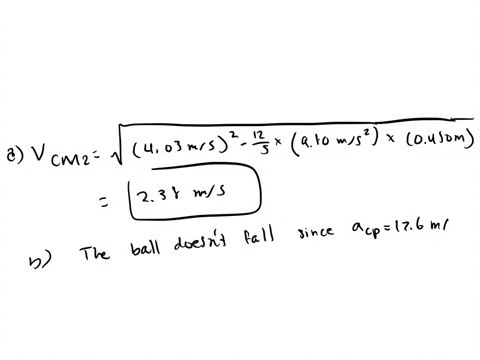 a) V CM2 = √(4.03 m/s)² - 12/5 × (9.80 m/s²) × (0.450m)
= 2.38 m/s
b) The ball doesn't fall since acp = 12.6 m/